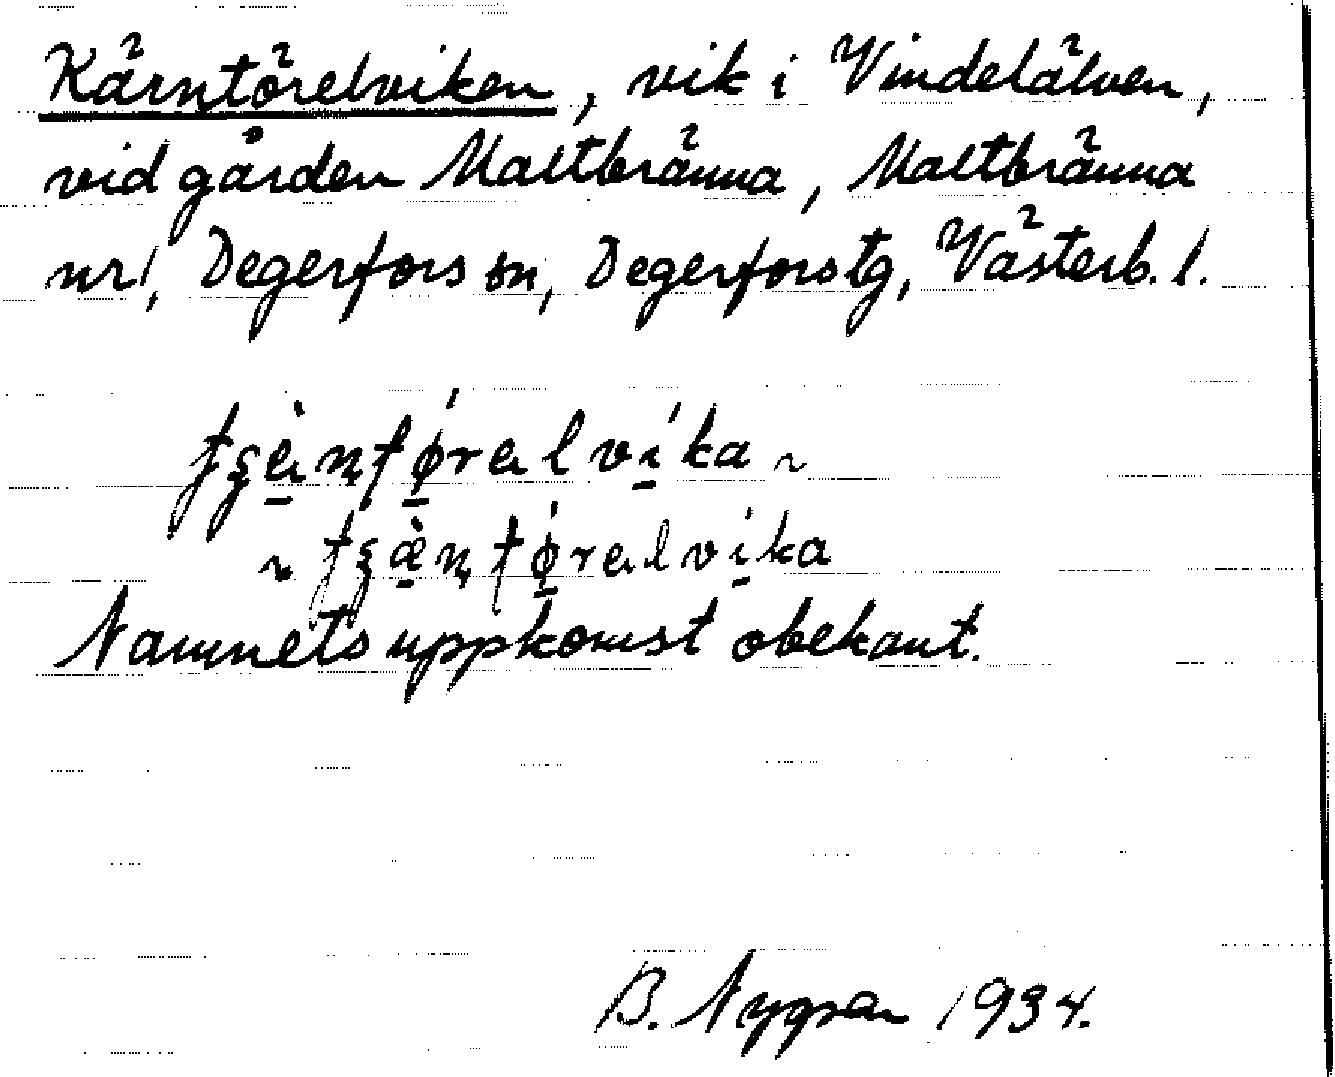 Kärntörelviken, vik i Vindelälven,
vid gården Maltbränna, Maltbränna
nr 1, Degerfors sn, Degerfors tg, Västerb. l.
Namnets uppkomst obekant.
B. Nygren 1934.